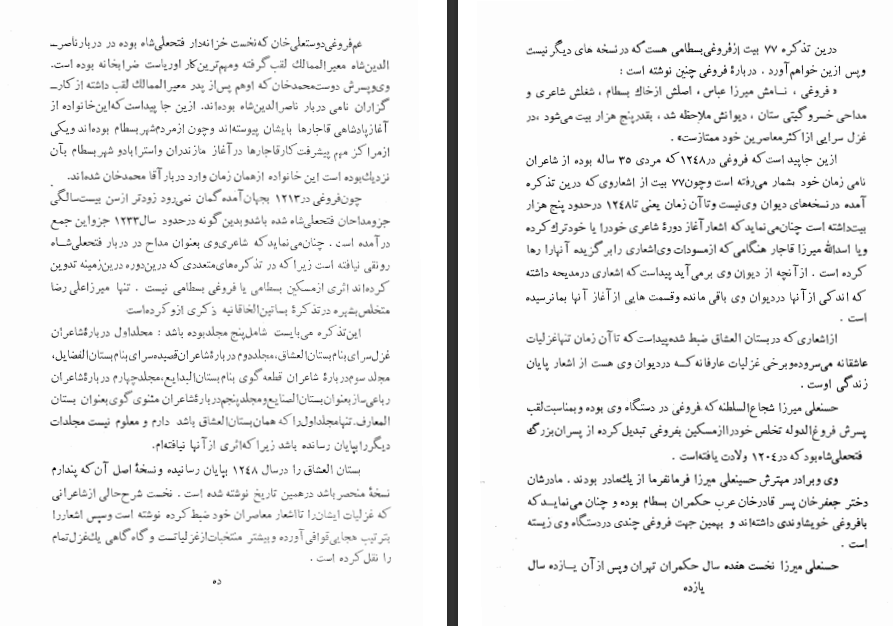 عم‌فروغی‌دوستعلی‌خان که نخست خزانه‌دار فتحعلی‌شاه بوده در دربار ناصرـ
الدین‌شاه معیرالممالك لقب گرفته ومهم‌ترین کار اوریاست ضرابخانه بوده است.
وی وپسرش دوست‌محمدخان که اوهم پس‌از پدر معیرالممالك لقب داشته از کارـ
گزاران نامی دربار ناصرالدین‌شاه بوده‌اند. ازین جا پیداست که‌این‌خانواده از
آغاز پادشاهی قاجارها بایشان پیوسته‌اند وچون ازمردم‌شهر بسطام بوده‌اند ویکی
ازمراکز مهم پیشرفت کارقاجارها درآغاز مازندران واستراباد و شهر بسطام بآن
نزدیك‌بوده است این خانواده ازهمان زمان وارد دربار آقا محمدخان شده‌اند.
چون‌فروغی در۱۲۱۳ بجهان‌آمده گمان نمی‌رود زودتر ازسن بیست‌سالگی
جزومداحان فتحعلی‌شاه شده باشد وبدین گونه درحدود سال۱۲۳۳ جزو این جمع
درآمده است . چنان‌می‌نماید که شاعری‌وی بعنوان مداح در دربار فتحعلی‌شاه
رونقی نیافته است زیرا که در تذکره‌های‌متعددی‌که درین‌دوره درین‌زمینه تدوین
کرده‌اند اثری ازمسکین بسطامی یا فروغی بسطامی نیست . تنها میرزاعلی رضا
متخلص‌بشهره درتذکرهٔ بساتین‌الخاقانیه ذکری ازو کرده‌است
این‌تذکره می‌بایست شامل‌پنج مجلدبوده باشد : مجلداول دربارهٔشاعران
غزل‌سرای‌بنام‌بستان‌العشاق،مجلددوم دربارهٔشاعران‌قصیده‌سرای‌بنام‌بستان‌الفضایل،
مجلد سوم‌دربارهٔ شاعران قطعه گوی بنام‌بستان‌البدایع،مجلدچهارم دربارهٔشاعران
رباعی‌ساز بعنوان‌بستان‌الصنایع‌ومجلدپنجم‌دربارهٔشاعران مثنوی گوی‌بعنوان بستان
المعارف.تنهامجلداول‌را که همان‌بستان‌العشاق باشد دارم و معلوم نیست مجلدات
دیگررابپایان رسانده باشد زیرا که‌اثری ازآنها نیافته‌ام.
بستان العشاق را درسال ۱۲۴۸ بپایان رسانیده ونسخهٔ اصل آن که پندارم
نسخهٔ منحصر باشد درهمین تاریخ نوشته شده است . نخست شرح‌حالی ازشاعرانی
که غزلیات ایشان‌را تااشعار معاصران خود ضبط کرده نوشته است وسپس اشعاررا
بترتیب هجایی‌قوافی آورده وبیشتر منتخبات‌ازغزلیاتست و گاه گاهی یك‌غزل‌تمام
را نقل کرده است .
ده
درین تذکره ۷۷ بیت ازفروغی‌بسطامی هست که درنسخه های دیگر نیست
وپس ازین خواهم‌آورد . دربارهٔ فروغی چنین نوشته است :
« فروغی ، نامش میرزا عباس ، اصلش ازخاك بسطام ، شغلش شاعری و
مداحی خسرو گیتی ستان ، دیوانش ملاحظه شد ، بقدر پنج هزار بیت می‌شود ،در
غزل سرایی ازاکثر معاصرین خود ممتازست» .
ازین جاپید است که فروغی در۱۲۴۸ که مردی ۳۵ ساله بوده از شاعران
نامی زمان خود بشمار می‌رفته است وچون۷۷ بیت از اشعاروی که درین تذکره
آمده درنسخه‌های دیوان وی‌نیست وتاآن زمان یعنی تا۱۲۴۸ درحدود پنج هزار
بیت‌داشته است چنان‌می‌نماید که اشعار آغاز دورهٔ شاعری خودرا یا خودترك کرده
ویا اسدالله میرزا قاجار هنگامی‌که ازمسودات وی‌اشعاری را بر گزیده آنهارا رها
کرده است . از آنچه از دیوان وی برمی‌آید پیداست‌که اشعاری درمدیحه داشته
که اندکی از آنها دردیوان وی باقی مانده وقسمت هایی از آغاز آنها بمانرسیده
است .
ازاشعاری که دربستان العشاق ضبط شده‌پیداست‌که تاآن زمان تنهاغزلیات
عاشقانه می‌سروده وبرخی غزلیات عارفانه که دردیوان وی هست از اشعار پایان
زندگی اوست .
حسنعلی میرزا شجاع‌السلطنه که فروغی در دستگاه وی بوده و بمناسبت‌لقب
پسرش فروغ‌الدوله تخلص خودراازمسکین بفروغی تبدیل‌کرده از پسران‌بزرگ
فتحعلی‌شاه‌بود که در۱۲۰۴ ولادت یافته‌است .
وی وبرادر مهترش حسینعلی میرزا فرمانفرما از یك‌مادر بودند . مادرشان
دختر جعفرخان پسر قادرخان عرب حکمران بسطام بوده و چنان می‌نماید که
بافروغی خویشاوندی داشته‌اند و بهمین جهت فروغی چندی دردستگاه وی زیسته
است .
حسنعلی میرزا نخست هفده سال حکمران تهران وپس از آن یازده سال
یازده